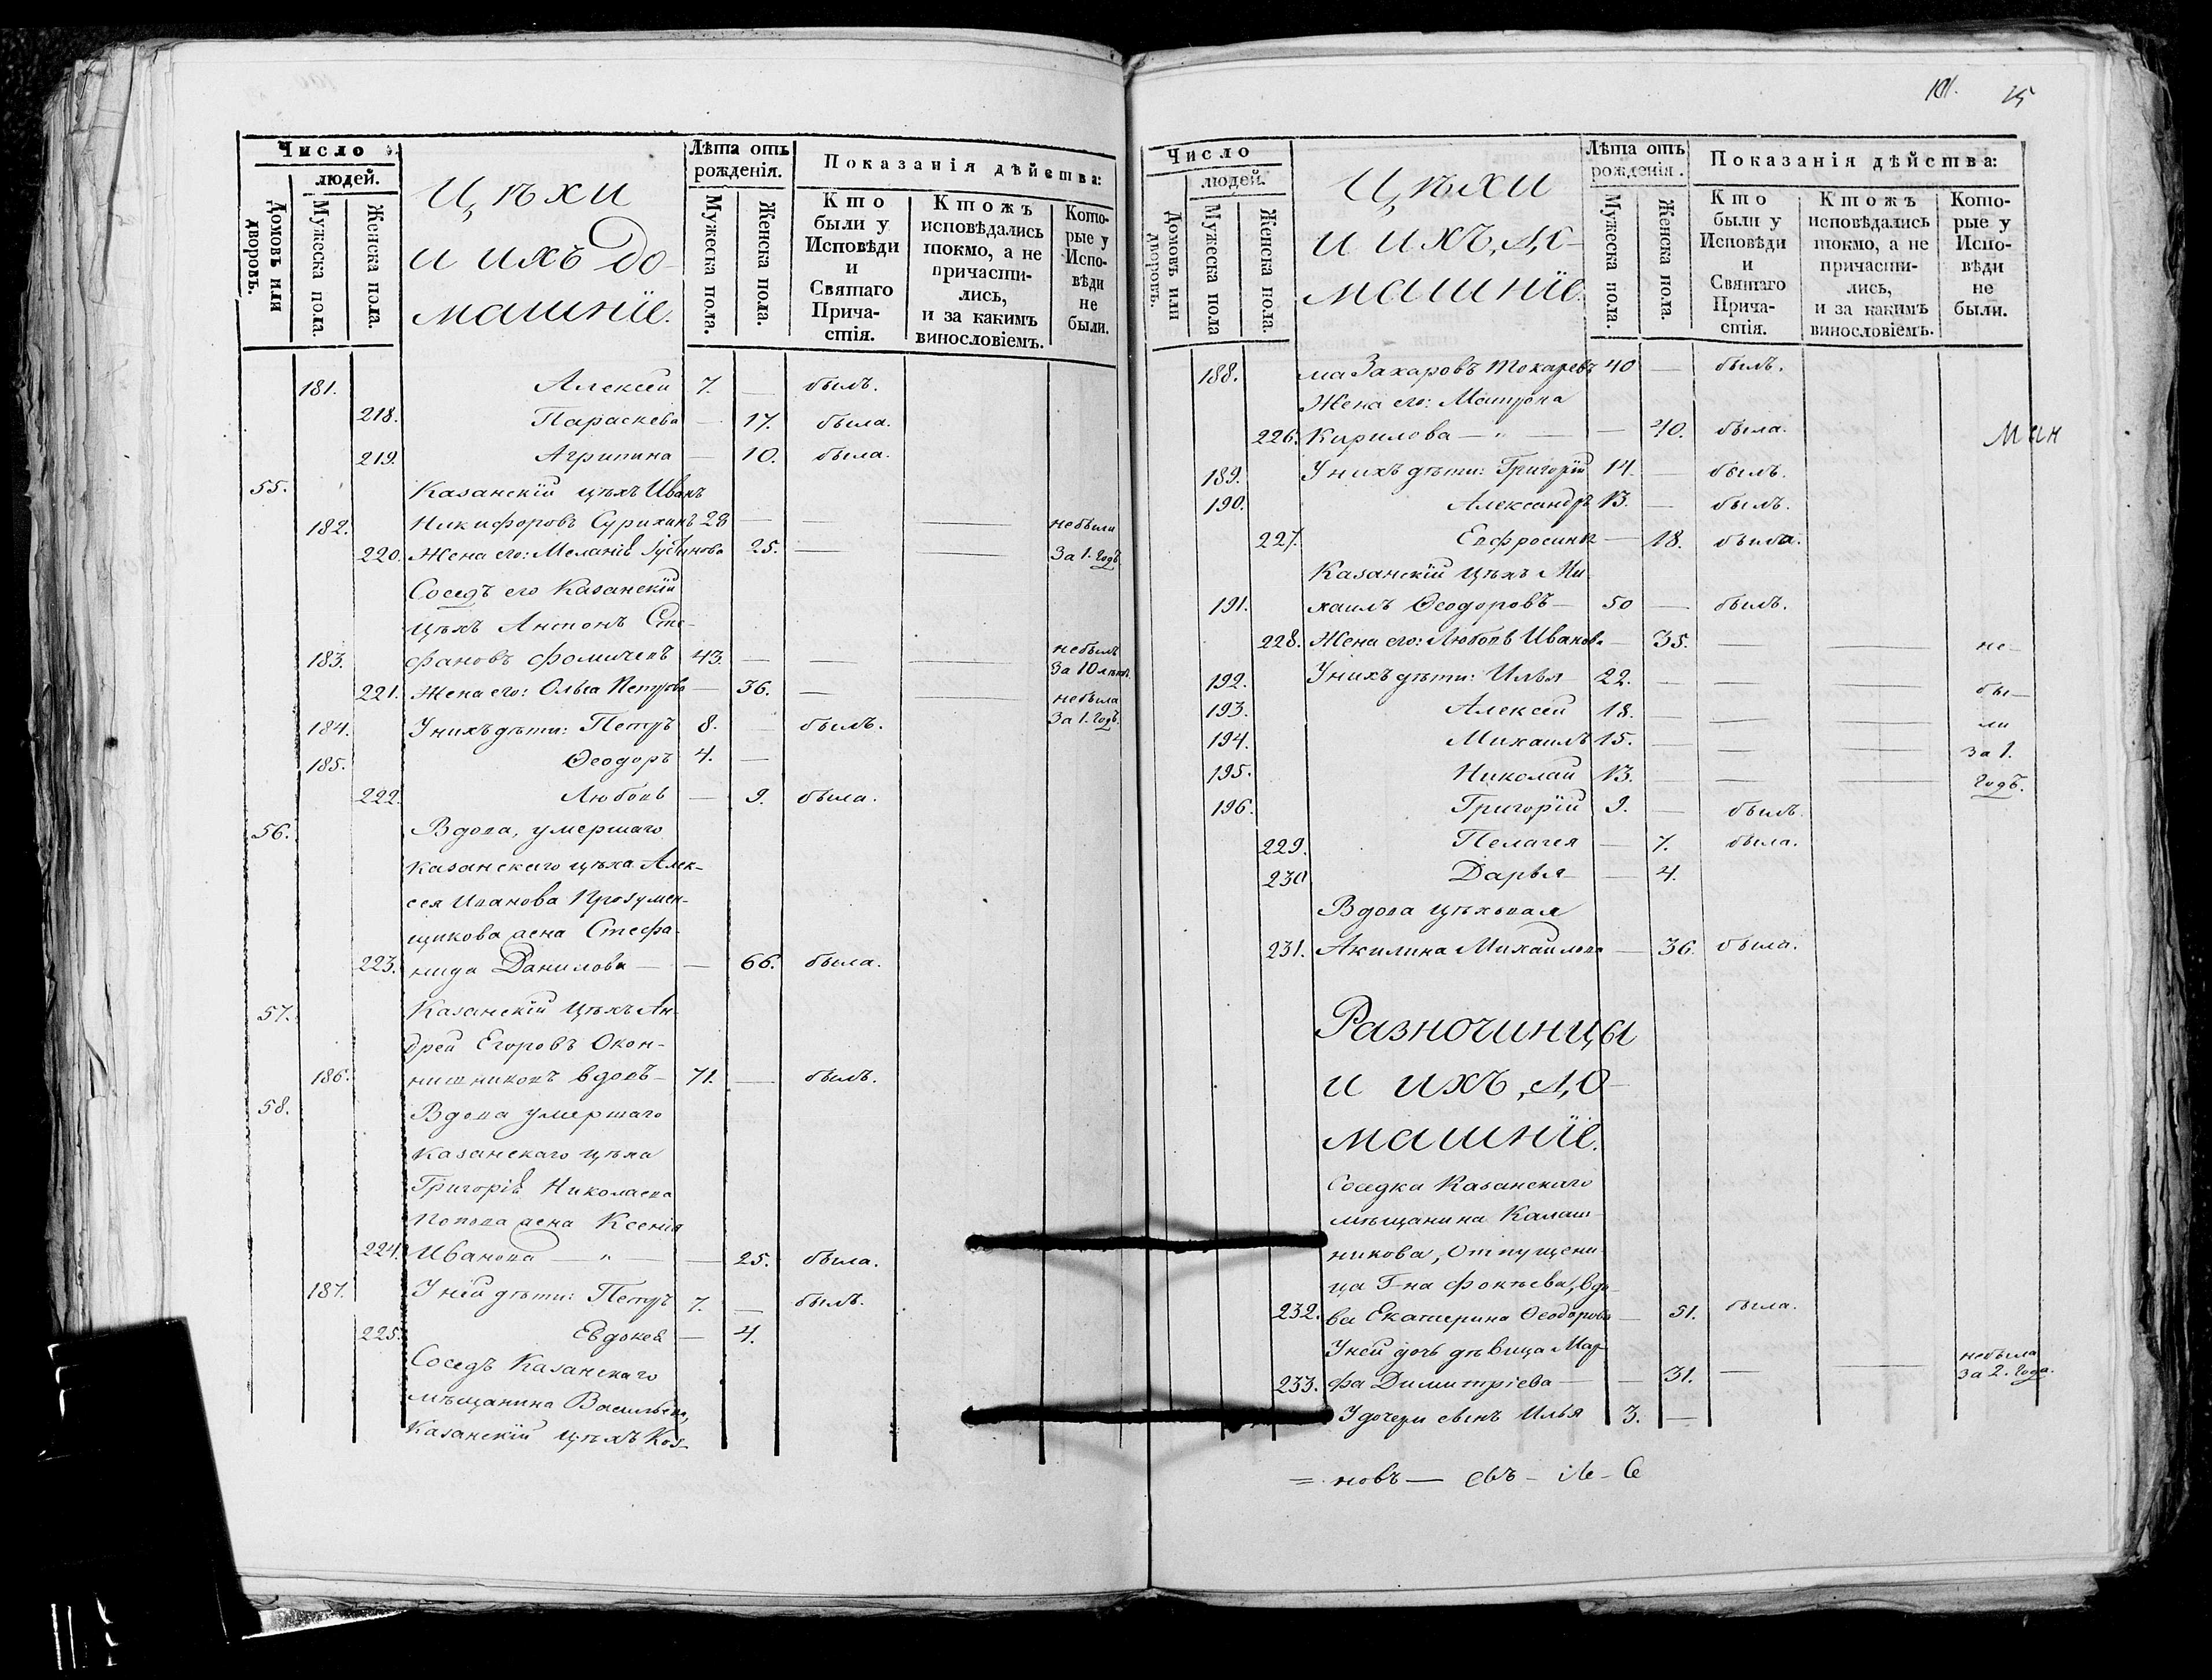 Число
людей.
Домовъ или дворовъ.
Мужеска пола.
Женска пола.
Цѣхи
и ихъ до-
машніе.
Лѣта отъ
рожденія.
Мужеска пола.
Женска пола.
Показанія дѣйства:
Кто
были у
Исповѣди
и
Святаго
Прича-
стія.
Ктожъ
исповѣдались
токмо, а не
причасти-
лись,
и за какимъ
винословіемъ.
Кото-
рые у
Испо-
вѣди
не
были.
181. Алексей 7. — былъ.
218. Параскева — 17. была.
219. Агрипина — 10. была.
55. Казанскій цѣхъ Иванъ
182. Никифоровъ Сурихинъ 28 — — — небыли
220. Жена его: Меланія 25. — — За 1. годъ
Соседъ его Казанскій
цѣхъ Антонъ Сте-
183. фановъ Фомичевъ 43. — — — небылъ
За 10 лѣтъ.
221. Жена его: Ольга Петрова — 36. — — небыла
За 1. годъ.
184. У нихъ дѣти: Петръ 8. — былъ.
185. Ѳеодоръ 4. —
222. Любовь — 9. была.
56. Вдова, умершаго
Казанскаго цѣха Алек-
сея Иванова Прозумен-
щикова жена Стефа-
223. нида Данилова — — 66. была.
57. Казанскій цѣхъ Ан-
дрей Егоровъ Окон-
186. нишниковъ вдовъ — 71. — былъ.
58. Вдова умершаго
Казанскаго цѣха
Григорія Николаева
Попова жена Ксенія
224. Иванова — " — — 25. была.
187. У ней дѣти: Петръ 7. — былъ.
225. Евдокея — 4.
Соседъ Казанскаго
мѣщанина Васильева,
Казанскій цѣхъ Коз-
101. 15
Число
людей.
Домовъ или дворовъ.
Мужеска пола
Женска пола.
Цѣхи
и ихъ до-
машніе.
Лѣта отъ
рожденія.
Мужеска пола.
Женска пола.
Показанія дѣйства:
Кто
были у
Исповѣди
и
Святаго
Прича-
стія.
Ктожъ
исповѣдались
токмо, а не
причасти-
лись,
и за какимъ
винословіемъ.
Кото-
рые у
Испо-
вѣди
не
были.
188. ма Захаровъ Токаревъ 40 — былъ.
Жена его: Матрона
226. Кирилова — " — — 40. была.
189. У нихъ дѣти: Григорій 14. — былъ.
190. Александръ 13. — былъ.
227. Евфросинья — 18. была.
Казанскій цѣхъ Ми-
191. хаилъ Ѳеодоровъ — 50 — былъ.
228. Жена его: Любовь Иванова — 35. — — не-
192. У нихъ дѣти: Илья 22. — — — бы-
193. Алексей 18. — — — ли
194. Михаилъ 15. — — — за 1.
195. Николай 13. — — — годъ.
196. Григорій 9. — былъ.
229. Пелагея — 7. была.
230 Дарья — 4.
Вдова цѣховая
231. Акилина Михайлова — 36. была.
Разночинцы
и ихъ до-
машніе.
Соседка Казанскаго
мѣщанина Калаш-
никова, Отпущени-
ца Г-на Фокѣева, вдо-
232. ва Екатерина Ѳеодорова — 51. была.
У ней дочь дѣвица Мар-
233. фа Димитріева — — 31. — — небыла
за 2. года.
У дочери сынъ Илья 3. —
= новъ —